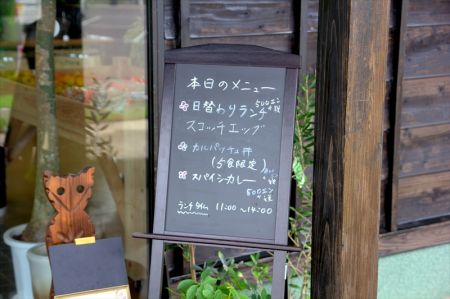 本日のメニュー
日替わりランチ 500エン
スコッチエッグ
カルパッチョ丼
(5食限定)
スパイシーカレー
500エン
ランチタイム 11:00〜14:00